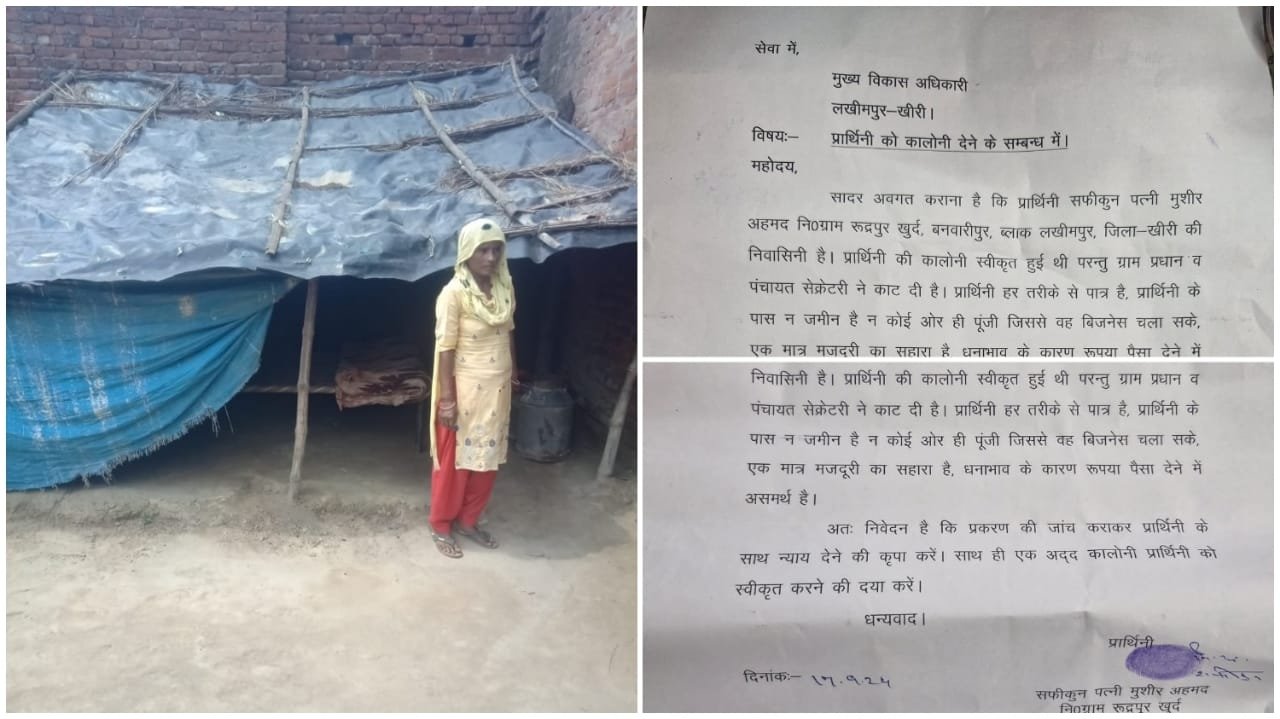 सेवा में,
मुख्य विकास अधिकारी
लखीमपुर–खीरी।
विषयः– प्रार्थिनी को कालोनी देने के सम्बन्ध में।
महोदय,
सादर अवगत कराना है कि प्रार्थिनी सफीकुन पत्नी मुशीर
अहमद नि0ग्राम रूद्रपुर खुर्द, बनवारीपुर, ब्लाक लखीमपुर, जिला–खीरी की
निवासिनी है। प्रार्थिनी की कालोनी स्वीकृत हुई थी परन्तु ग्राम प्रधान व
पंचायत सेक्रेटरी ने काट दी है। प्रार्थिनी हर तरीके से पात्र है, प्रार्थिनी के
पास न जमीन है न कोई ओर ही पूंजी जिससे वह बिजनेस चला सके,
एक मात्र मजदूरी का सहारा है, धनाभाव के कारण रूपया पैसा देने में
निवासिनी है। प्रार्थिनी की कालोनी स्वीकृत हुई थी परन्तु ग्राम प्रधान व
पंचायत सेक्रेटरी ने काट दी है। प्रार्थिनी हर तरीके से पात्र है, प्रार्थिनी के
पास न जमीन है न कोई ओर ही पूंजी जिससे वह बिजनेस चला सके,
एक मात्र मजदूरी का सहारा है, धनाभाव के कारण रूपया पैसा देने में
असमर्थ है।
अतः निवेदन है कि प्रकरण की जांच कराकर प्रार्थिनी के
साथ न्याय देने की कृपा करें। साथ ही एक अद्द कालोनी प्रार्थिनी को
स्वीकृत करने की दया करें।
धन्यवाद।
प्रार्थिनी
दिनांकः– 17.9.24
सफीकुन पत्नी मुशीर अहमद
नि0ग्राम रूद्रपुर खुर्द